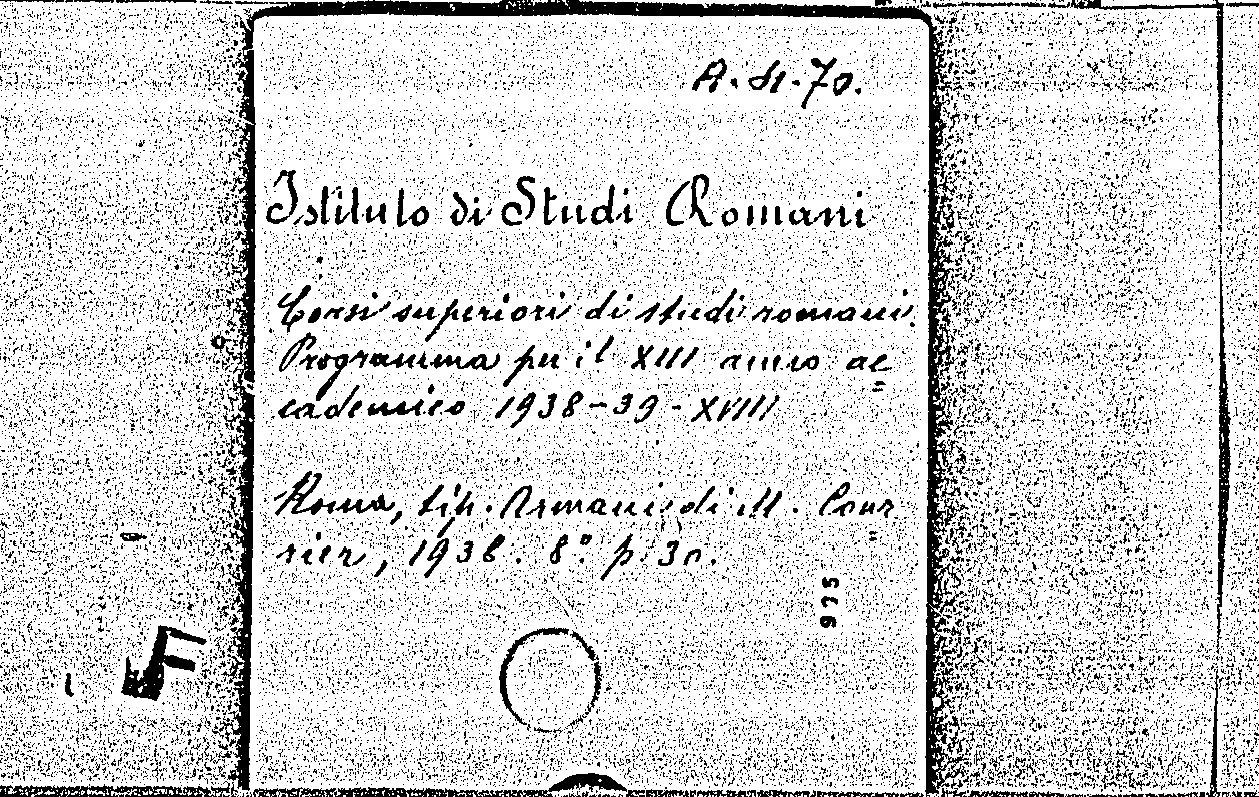 Istituto di Studi Romani
Corsi superiori di studi romani.
Programma per il XIII anno ac=
cademico 1938-39-XVIII
Roma, tip. Armani di M. Cour=
rier, 1938. 8° p. 30.
975
F